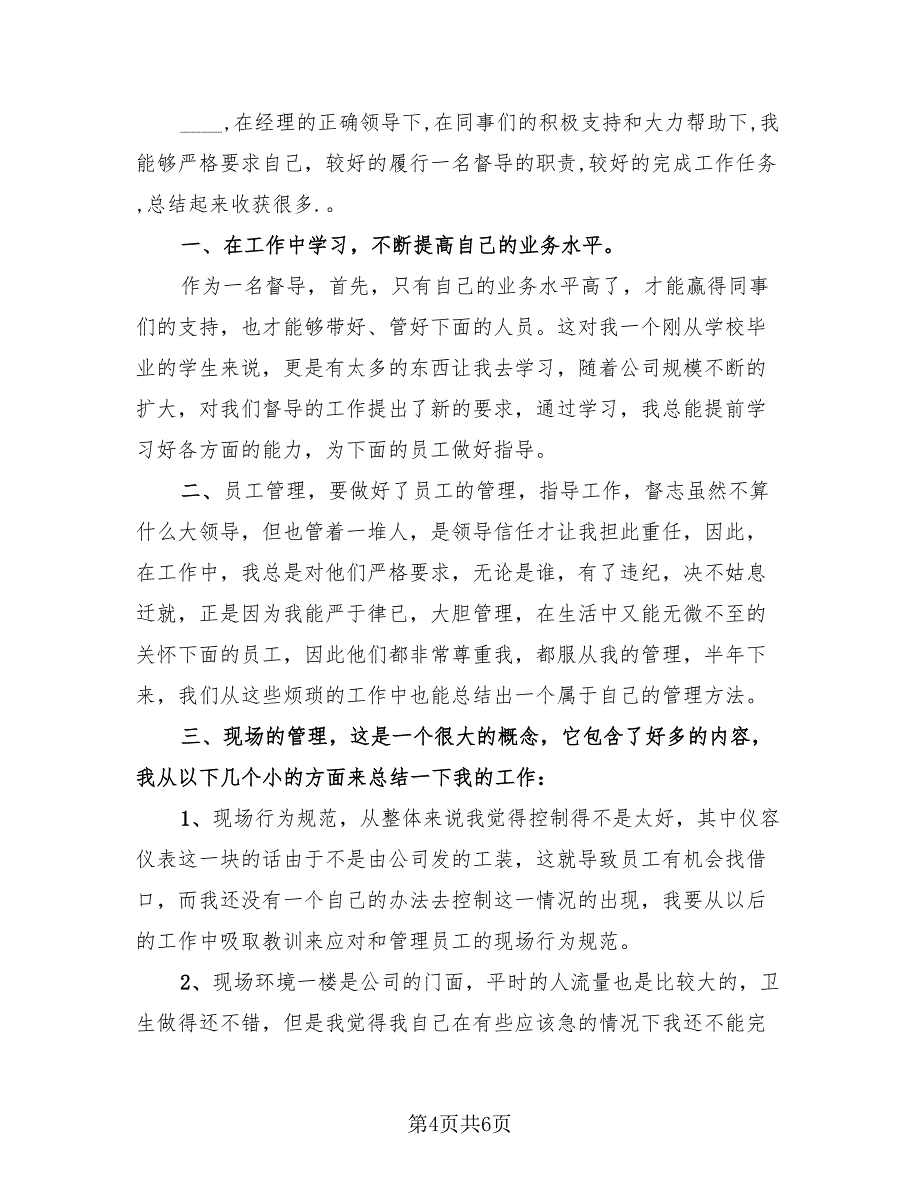 ____,在经理的正确领导下,在同事们的积极支持和大力帮助下,我
能够严格要求自己，较好的履行一名督导的职责,较好的完成工作任务
,总结起来收获很多.。
一、在工作中学习，不断提高自己的业务水平。
作为一名督导，首先，只有自己的业务水平高了，才能赢得同事
们的支持，也才能够带好、管好下面的人员。这对我一个刚从学校毕
业的学生来说，更是有太多的东西让我去学习，随着公司规模不断的
扩大，对我们督导的工作提出了新的要求，通过学习，我总能提前学
习好各方面的能力，为下面的员工做好指导。
二、员工管理，要做好了员工的管理，指导工作，督志虽然不算
什么大领导，但也管着一堆人，是领导信任才让我担此重任，因此，
在工作中，我总是对他们严格要求，无论是谁，有了违纪，决不姑息
迁就，正是因为我能严于律已，大胆管理，在生活中又能无微不至的
关怀下面的员工，因此他们都非常尊重我，都服从我的管理，半年下
来，我们从这些烦琐的工作中也能总结出一个属于自己的管理方法。
三、现场的管理，这是一个很大的概念，它包含了好多的内容，
我从以下几个小的方面来总结一下我的工作：
1、现场行为规范，从整体来说我觉得控制得不是太好，其中仪容
仪表这一块的话由于不是由公司发的工装，这就导致员工有机会找借
口，而我还没有一个自己的办法去控制这一情况的出现，我要从以后
的工作中吸取教训来应对和管理员工的现场行为规范。
2、现场环境一楼是公司的门面，平时的人流量也是比较大的，卫
生做得还不错，但是我觉得我自己在有些应该急的情况下我还不能完
第4页共6页